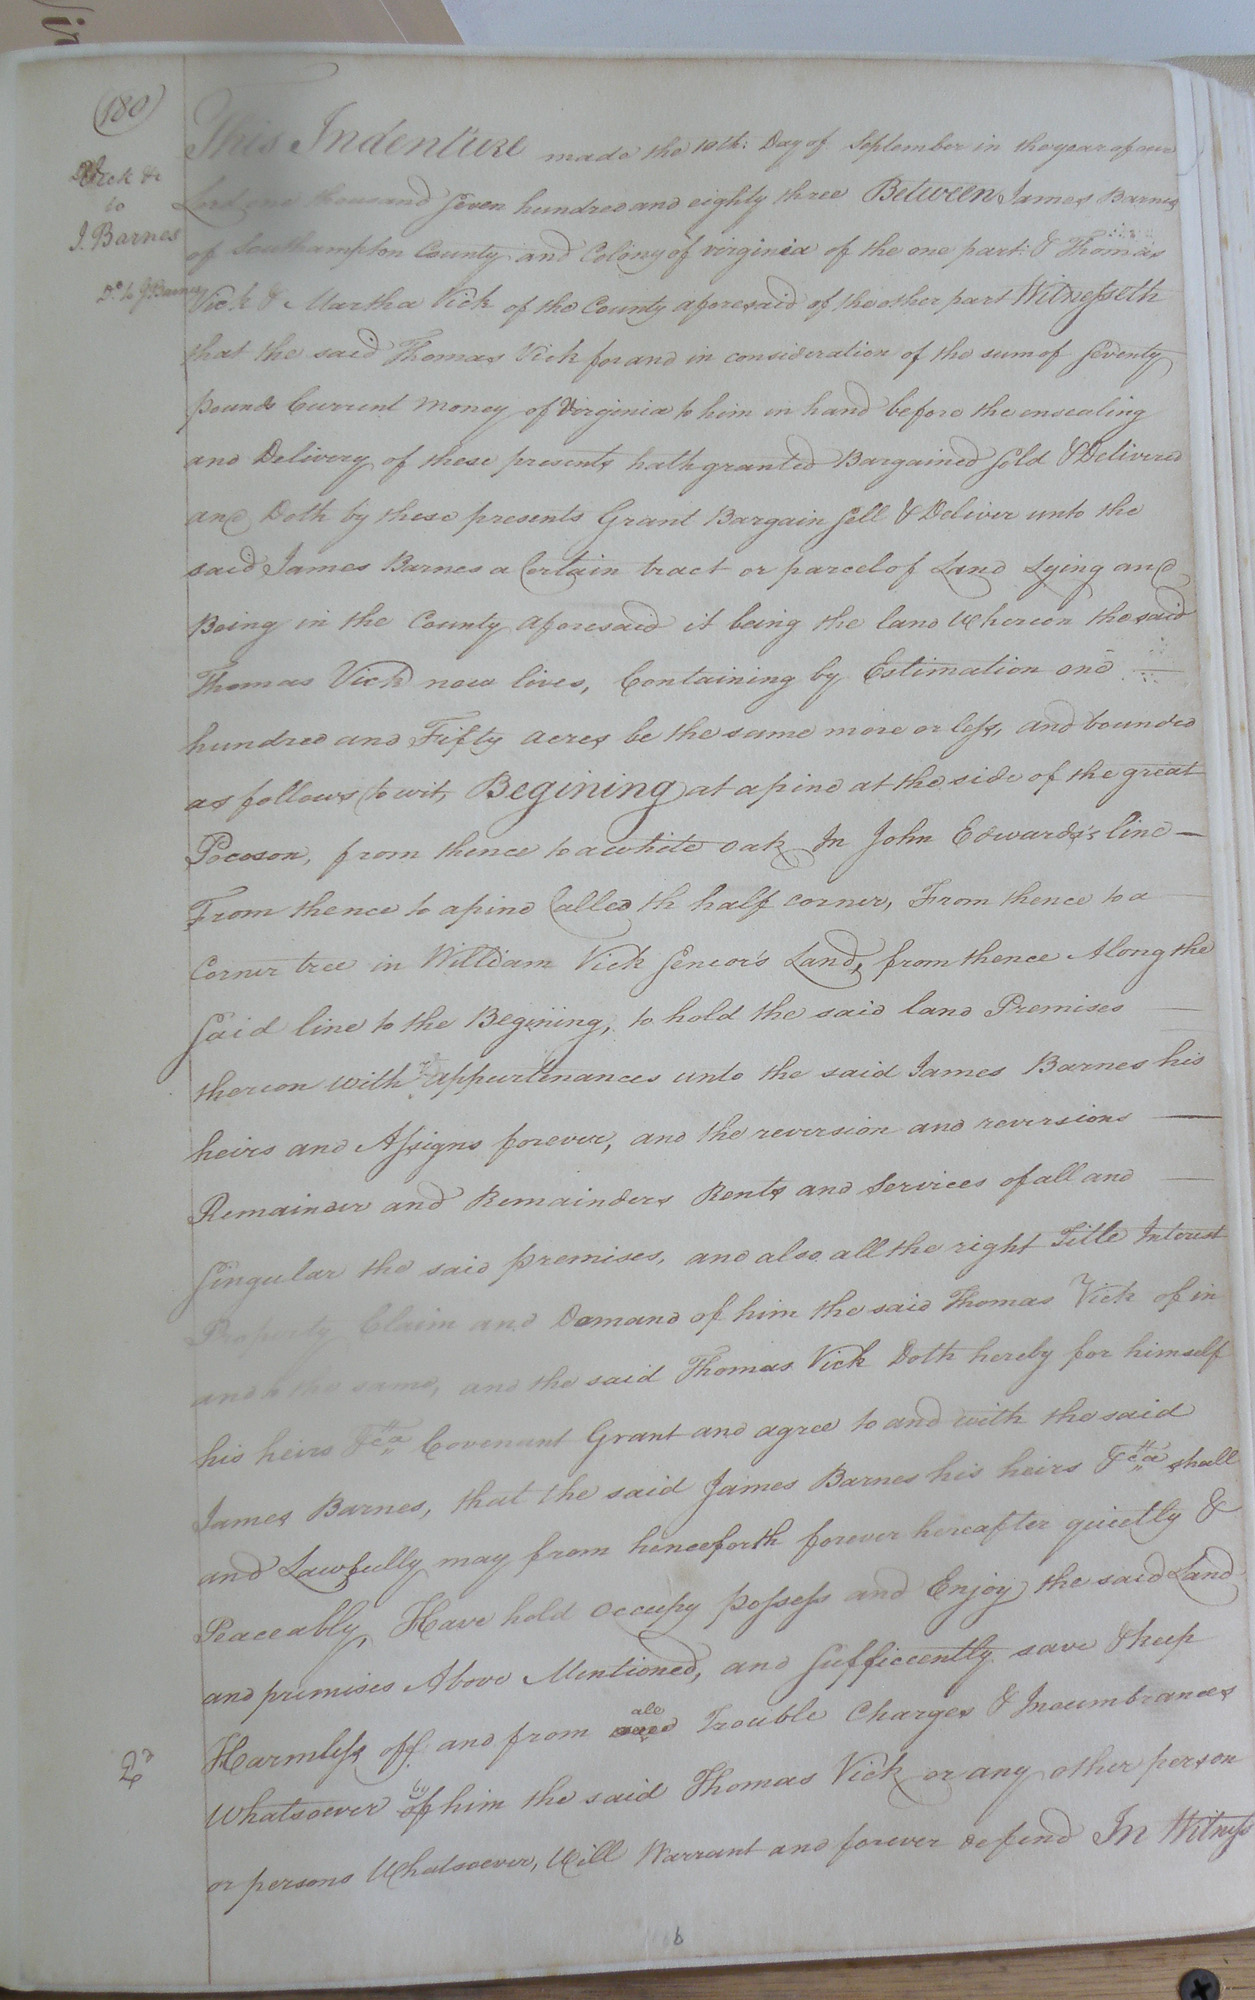 (180)
Vick &c
to
J. Barnes
Do. to J Barnes
This Indenture made the 10th: Day of September in the year of our
Lord one thousand Seven hundred and eighty three Between James Barnes
of Southampton County and Colony of virginia of the one part & Thomas
Vick & Martha Vick of the County aforesaid of the other part Witnesseth
that the said Thomas Vick for and in consideration of the sum of Seventy
pounds Current money of Virginia to him in hand before the ensealing
and Delivery of these presents hath granted Bargained Sold & Delivered
and Doth by these presents Grant Bargain Sell & Deliver unto the
said James Barnes a Certain tract or parcel of Land Lying and
Being in the County aforesaid it being the land Whereon the said
Thomas Vick now lives, Containing by Estimation one
hundred and Fifty acres be the same more or less, and bounded
as follows (to wit, Begining at a pine at the side of the great
Pocoson, from thence to a white oak In John Edwards's line —
From thence to a pine Called th half corner, From thence to a
Corner tree in William Vick Seneor's Land, from thence Along the
Said line to the Begining, to hold the said land Premises
thereon with appurtenances unto the said James Barnes his
heirs and Assigns forever, and the reversion and reversions —
Remainder and Remainders Rents and Services of all and —
Singular the said premises, and also all the right Title Interest
Property Claim and Demand of him the said Thomas Vick of in
and to the same, and the said Thomas Vick Doth hereby for himself
his heirs &ca Covenant Grant and agree to and with the said
James Barnes, that the said James Barnes his heirs &ca shall
and Lawfully may from henceforth forever hereafter quietly &
Peaceably, Have hold occupy possess and Enjoy the said Land
and premises Above Mentioned, and Sufficcently save & keep
Harmless off and from all Trouble Charges & Incumbrances
Whatsoever by him the said Thomas Vick or any other person
or persons Whatsoever, Will Warrant and forever defend In Witness
b